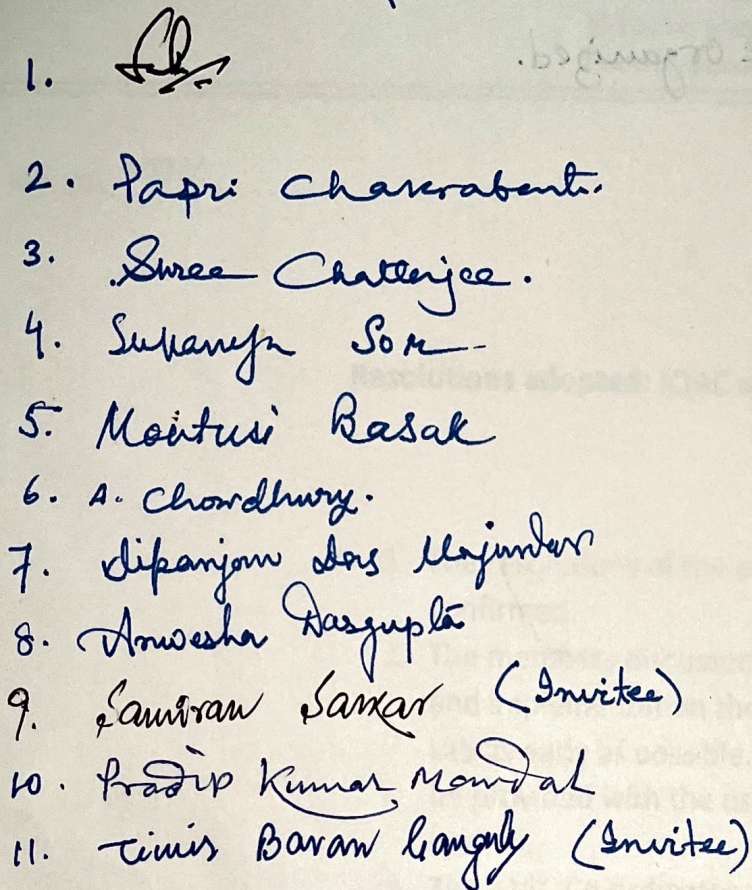 1.
2. Papri Chakrabarti.
3. Suree Chatterjee.
4. Sukanya Som
5. Moutusi Basak
6. A. Chowdhury.
7. Dipanjan Das Majumdar
8. Anwesha Dasgupta
9. Samiran Sarkar (Invitee)
10. Pradip Kumar Mondal
11. Timir Baran Ganguly (Invitee)